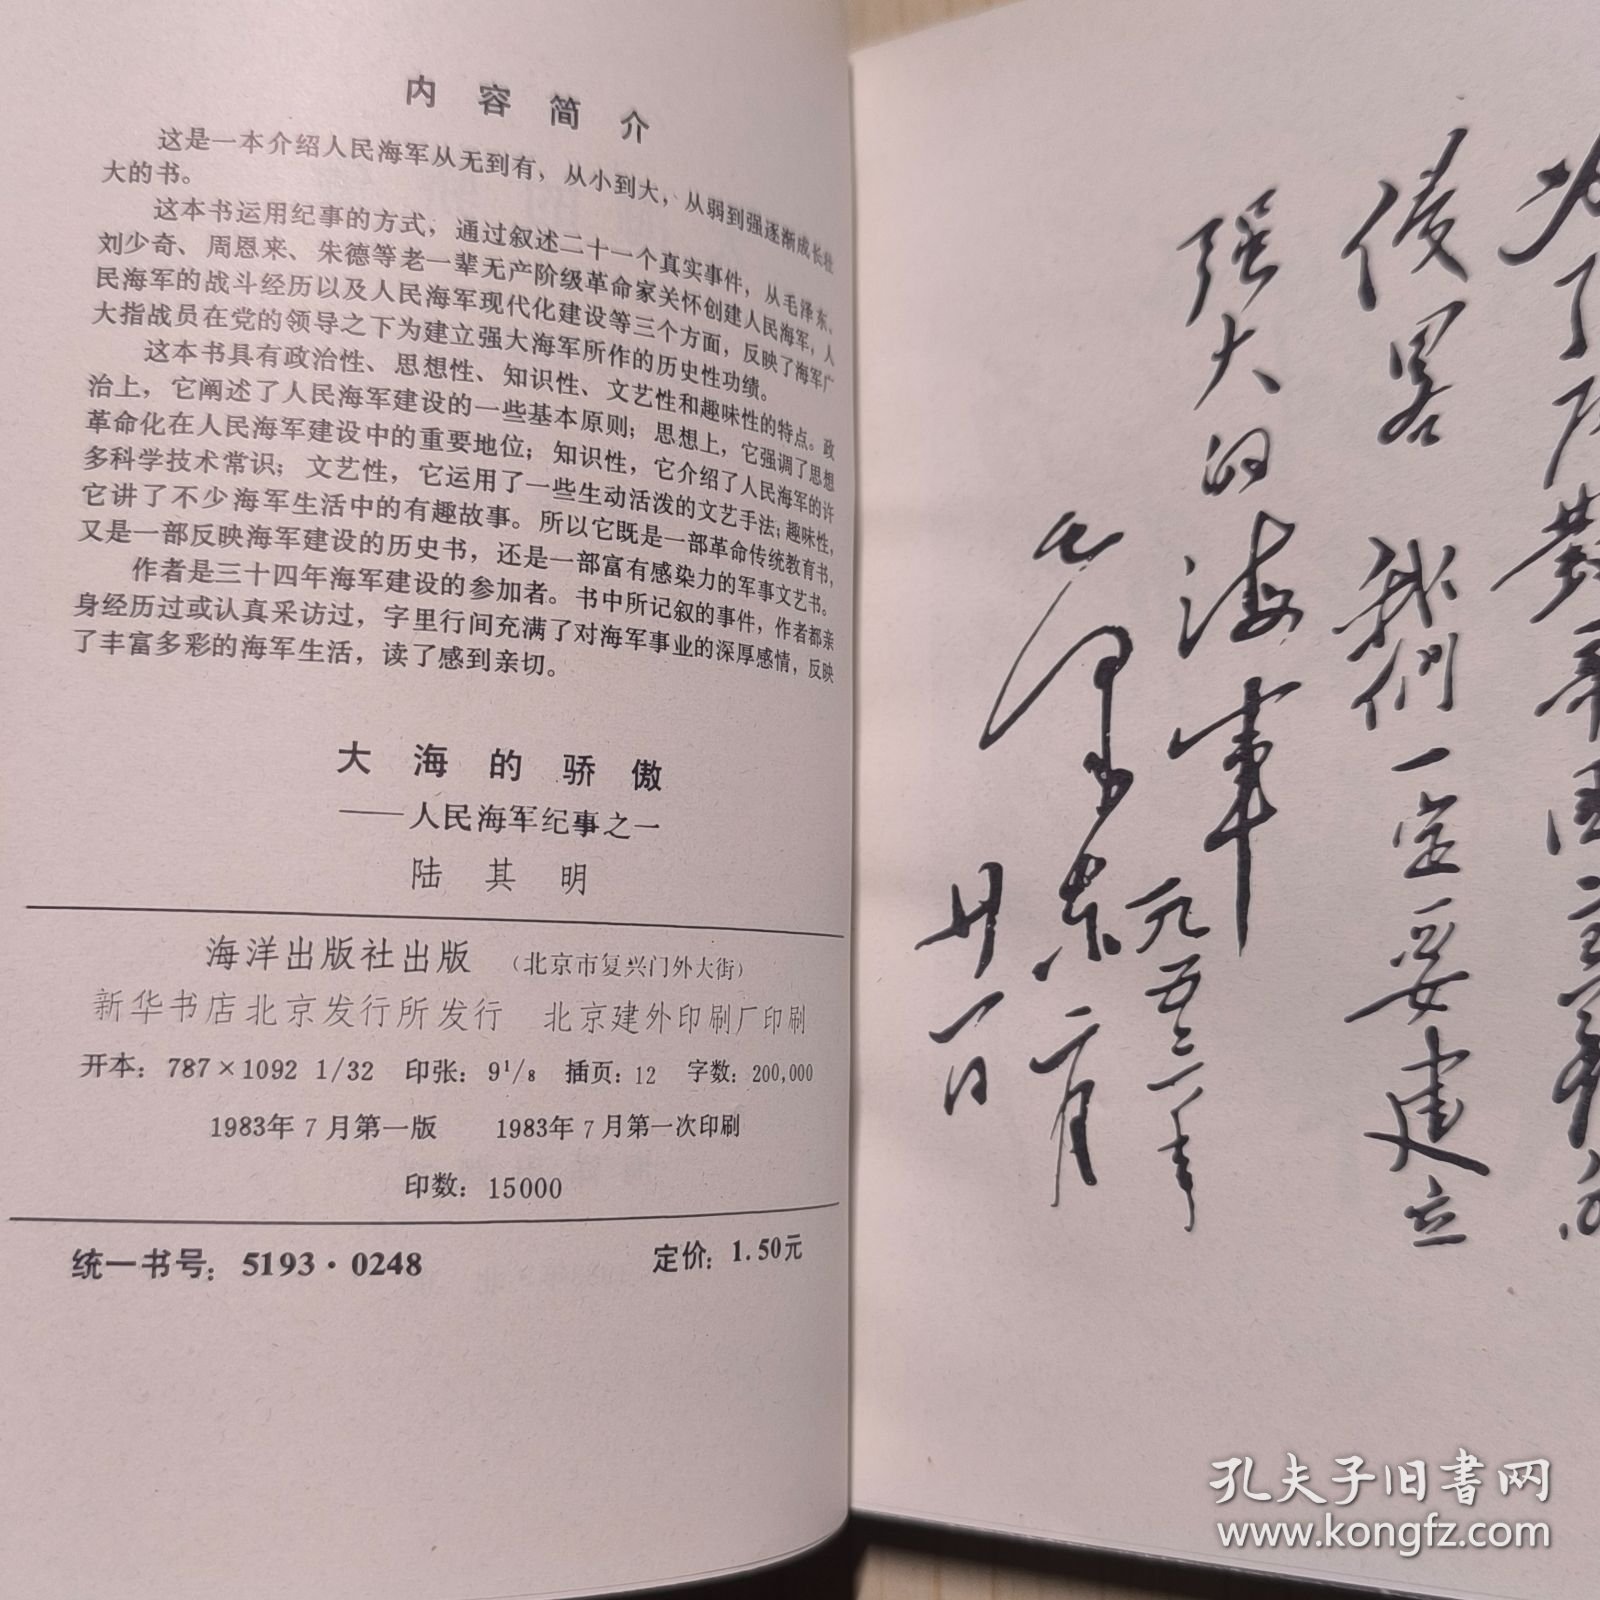 内容简介
这是一本介绍人民海军从无到有，从小到大，从弱到强逐渐成长壮
大的书。
这本书运用纪事的方式，通过叙述二十一个真实事件，从毛泽东、
刘少奇、周恩来、朱德等老一辈无产阶级革命家关怀创建人民海军，人
民海军的战斗经历以及人民海军现代化建设等三个方面，反映了海军广
大指战员在党的领导之下为建立强大海军所作的历史性功绩。
这本书具有政治性、思想性、知识性、文艺性和趣味性的特点。政
治上，它阐述了人民海军建设的一些基本原则；思想上，它强调了思想
革命化在人民海军建设中的重要地位；知识性，它介绍了人民海军的许
多科学技术常识；文艺性，它运用了一些生动活泼的文艺手法；趣味性，
它讲了不少海军生活中的有趣故事。所以它既是一部革命传统教育书，
又是一部反映海军建设的历史书，还是一部富有感染力的军事文艺书。
作者是三十四年海军建设的参加者。书中所记叙的事件，作者都亲
身经历过或认真采访过，字里行间充满了对海军事业的深厚感情，反映
了丰富多彩的海军生活，读了感到亲切。
大海的骄傲
——人民海军纪事之一
陆其明
海洋出版社出版 （北京市复兴门外大街）
新华书店北京发行所发行 北京建外印刷厂印刷
开本：787×1092 1/32 印张：9 1/8 插页：12 字数：200,000
1983年7月第一版 1983年7月第一次印刷
印数：15000
统一书号：5193·0248 定价：1.50元
为了反对帝国主义的
侵略 我們一定要建立
强大的海軍
毛泽东
一九五三年
二月
廿一日
孔夫子旧书网
www.kongfz.com